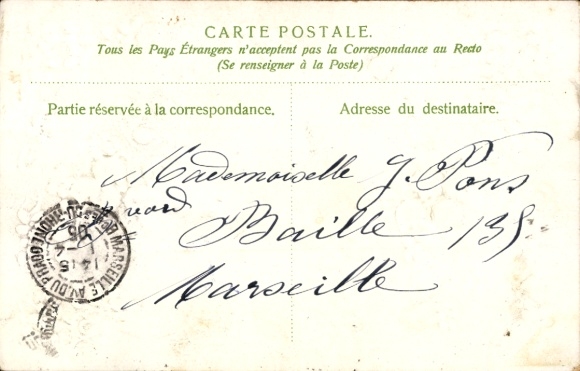 CARTE POSTALE.
Tous les Pays Étrangers n'acceptent pas la Correspondance au Recto
(Se renseigner à la Poste)
Partie réservée à la correspondance.
Adresse du destinataire.
Mademoiselle J. Pons
Bvard Baille 135
Marseille
MARSEILLE AV. DU PRADO
BCHES-DU-RHONE
14 15